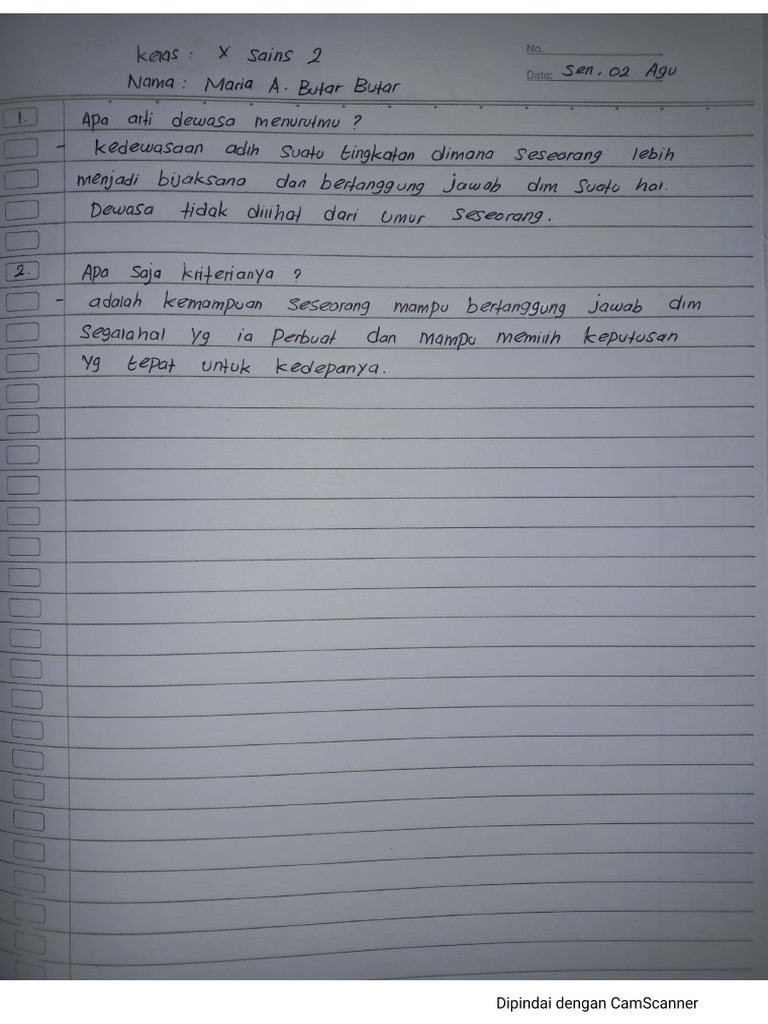 Kelas : X Sains 2
No.
Nama : Maria A. Butar Butar
Date: Sen, 02 Agu
1. Apa arti dewasa menurutmu ?
- Kedewasaan adlh suatu tingkatan dimana seseorang lebih
menjadi bijaksana dan bertanggung jawab dlm suatu hal.
Dewasa tidak dilihat dari umur seseorang.
2. Apa saja kriterianya ?
- adalah kemampuan seseorang mampu bertanggung jawab dlm
segalahal yg ia perbuat dan mampu memilih keputusan
yg tepat untuk kedepanya.
Dipindai dengan CamScanner